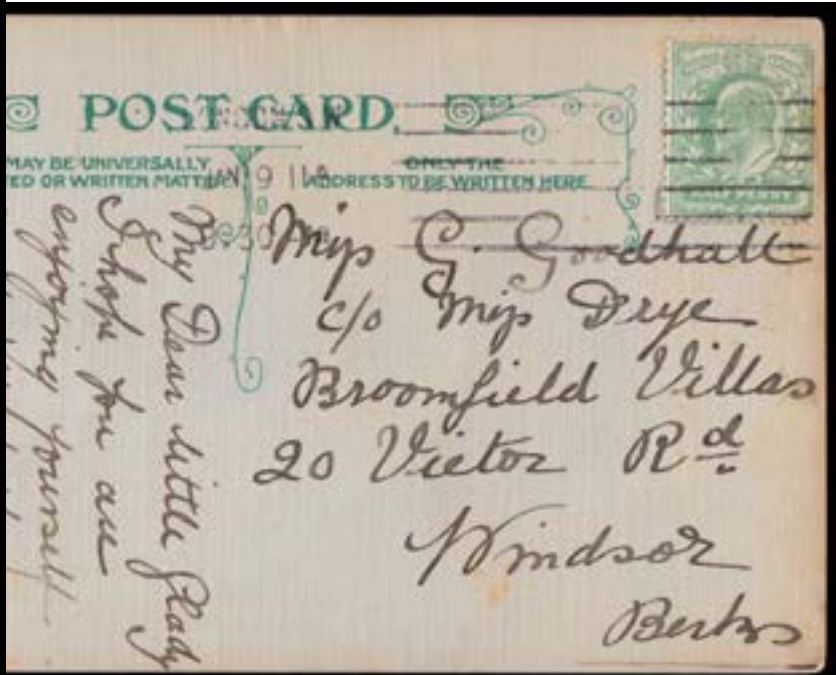 POST CARD.
MAY BE UNIVERSALLY
TED OR WRITTEN MATTER
ONLY THE
ADDRESS TO BE WRITTEN HERE
JAN 9
Miss G. Goodhall
c/o Miss Drye
Broomfield Villas
20 Victor Rd
Windsor
Berks
My Dear little Glady
I hope you are
enjoying yourself